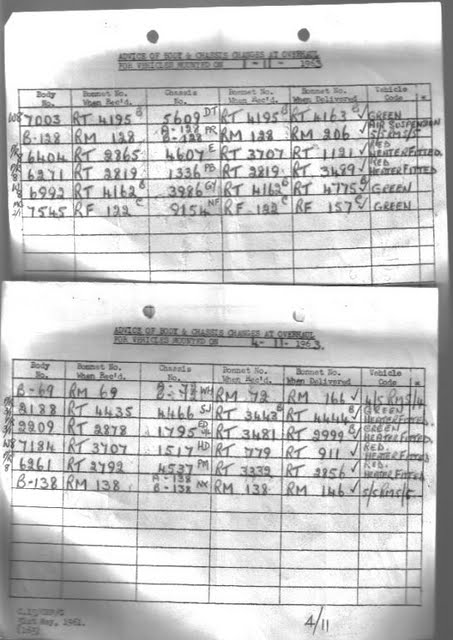 ADVICE OF BODY & CHASSIS CHANGES AT OVERHAUL
FOR VEHICLES MOUNTED ON 1 - 11 - 1963
Body No. Bonnet No. When Rec'd. Chassis No. Bonnet No. When Rec'd. Bonnet No. When Delivered Vehicle Code *
W8 7003 RT 4195 B 5609 DT RT 4195 B RT 4163 B ✓ GREEN
B-128 RM 128 A-128 B-128 PR RM 128 RM 206 ✓ AIR SUSPENSION S/SRMS/5
PR 8 6404 RT 2865 4607 E RT 3707 RT 1121 ✓ RED. HEATER FITTED.
PR 8 6271 RT 2819 1336 PB RT 2819 RT 3489 ✓ RED. HEATER FITTED.
W 8 6992 RT 4162 B 3986 GY RT 4162 B RT 4775 ✓ GREEN
7545 RF 122 C 9154 NF RF 122 C RF 157 C ✓ GREEN
ADVICE OF BODY & CHASSIS CHANGES AT OVERHAUL
FOR VEHICLES MOUNTED ON 4 - 11 - 1963.
Body No. Bonnet No. When Rec'd. Chassis No. Bonnet No. When Rec'd. Bonnet No. When Delivered Vehicle Code *
B-69 RM 69 WH RM 72 RM 166 ✓
2188 RT 4435 4466 SJ RT 3443 RT 4444 ✓ GREEN HEATER FITTED.
2209 RT 2878 1795 RT 3481 RT 2999 ✓ GREEN HEATER FITTED.
W8 7184 RT 3707 1517 HD RT 779 RT 911 ✓ RED. HEATER FITTED.
PR 8 6261 RT 2792 4537 PM RT 3232 RT 2856 ✓ RED. HEATER FITTED.
B-138 RM 138 A-138 B-138 NX RM 138 RM 146 ✓ S/SRMS/5
31st May, 1961.
4/11